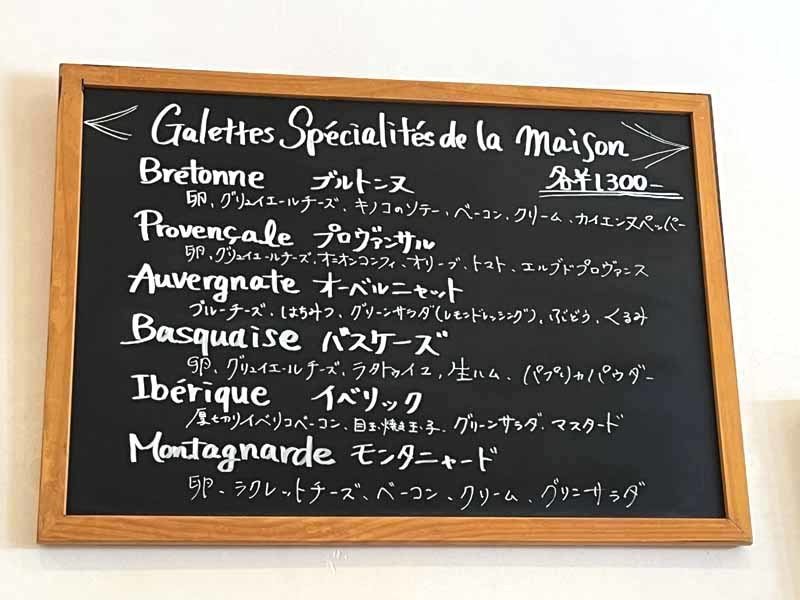 Galettes Spécialités de la maison
各¥1300-
Bretonne ブルトンヌ
卵、グリュイエールチーズ、キノコのソテー、ベーコン、クリーム、カイエンヌペッパー
Provençale プロヴァンサル
卵、グリュイエールチーズ、オニオンコンフィ、オリーブ、トマト、エルブドプロヴァンス
Auvergnate オーベルニャット
ブルーチーズ、はちみつ、グリーンサラダ(レモンドレッシング)、ぶどう、くるみ
Basquaise バスケーズ
卵、グリュイエールチーズ、ラタトゥイユ、生ハム、パプリカパウダー
Ibérique イベリック
厚切りイベリコベーコン、目玉焼き玉子、グリーンサラダ、マスタード
Montagnarde モンタニャード
卵、ラクレットチーズ、ベーコン、クリーム、グリーンサラダ